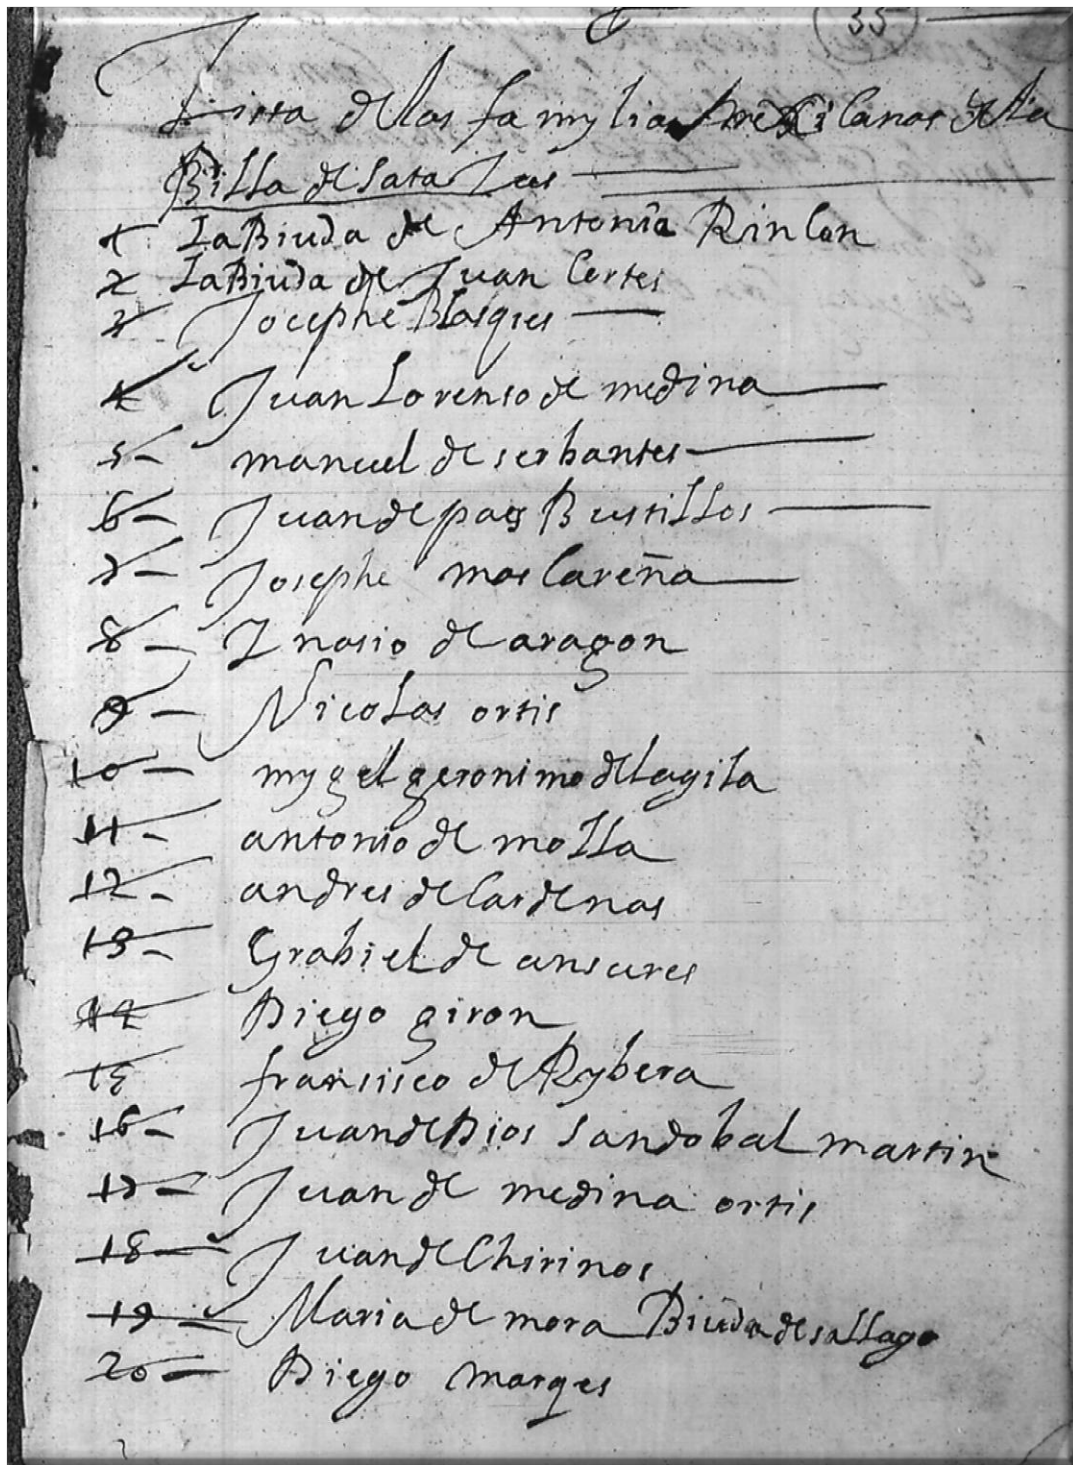 35
Lista de las famylias mexicanas de la
Billa de Sata Zus
1 La Biuda de Antonio Rincon
2 La Biuda de Juan Cortes
3 Jocephe Blasques
4 Juan Lorenso de medina
5 manuel de serbantes
6 Juan de paes Bustillos
7 Josephe mascareña
8 Ynasio de aragon
9 Nicolas ortis
10 mygel geronimo del agila
11 antonio de molla
12 andres de Cardenas
13 Grabiel de ansures
14 Diego giron
15 fransisco de Rybera
16 Juan de Dios Sandobal martin
17 Juan de medina ortis
18 Juan de Chirinos
19 Maria de mora Biuda de sallago
20 Diego marqes